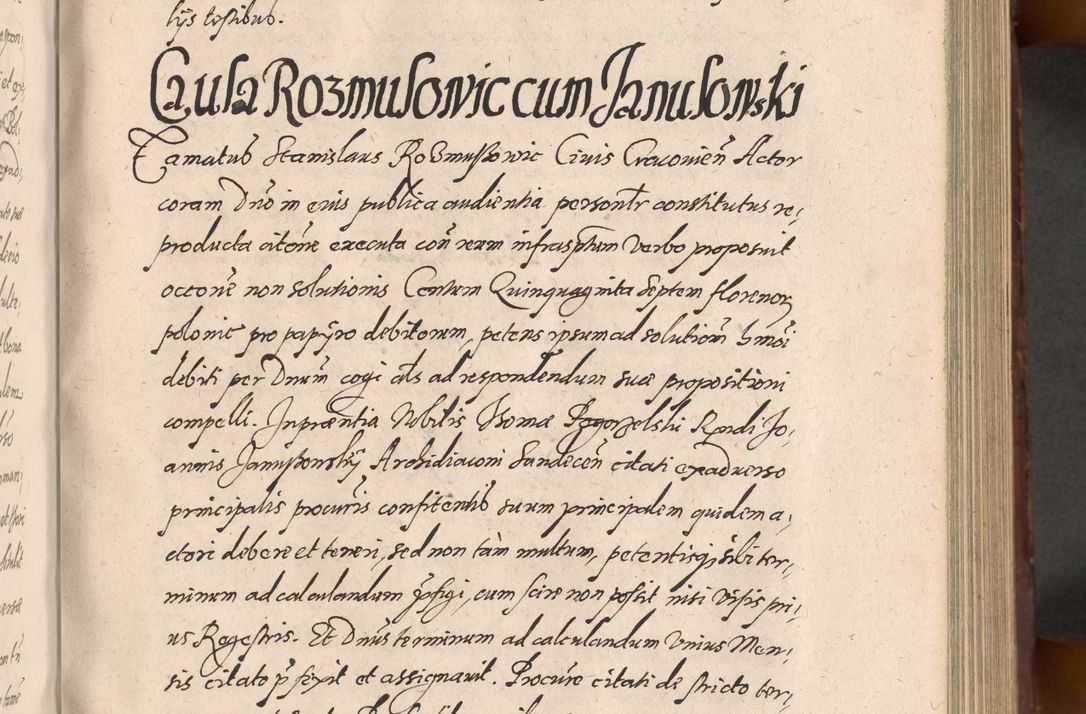 lijs testibus.
Causa Rozmusowic cum Janusowski
Famatus Stanislaus Rozmussowic Civis Cracovien̄ Actor
coram Dn̄o in eius publica audientia personr̄ constitutus re,
producta citōne executa con̄ reum infrasptum verbo proposuit
occōne non solutionis Centum Quinquaginta septem florenor
polonic pro papÿro debitorum, petens ipsum ad solutiom̄ hmōi
debiti per Dnum̄ cogi als ad respondendum suæ propositioni
compelli. In præntia Nobilis Thomæ Pogorzelski Rndi Jo,
annis Janussowskÿ Archidiaconi Sandecen̄ citati ex adverso
principalis procuris̄ confitentis̄ suum principalem quidem a,
ctori debere et teneri, sed non tàm multum, petentisq; sibi ter,
minum ad calculandum p̄figi, cum scire non possit nisi visis pri,
us Regestris. Et Dnūs terminum ad calculandum unius Men,
sis citato p̄ fexit et assignavit. Procurē citati de stricto ter,